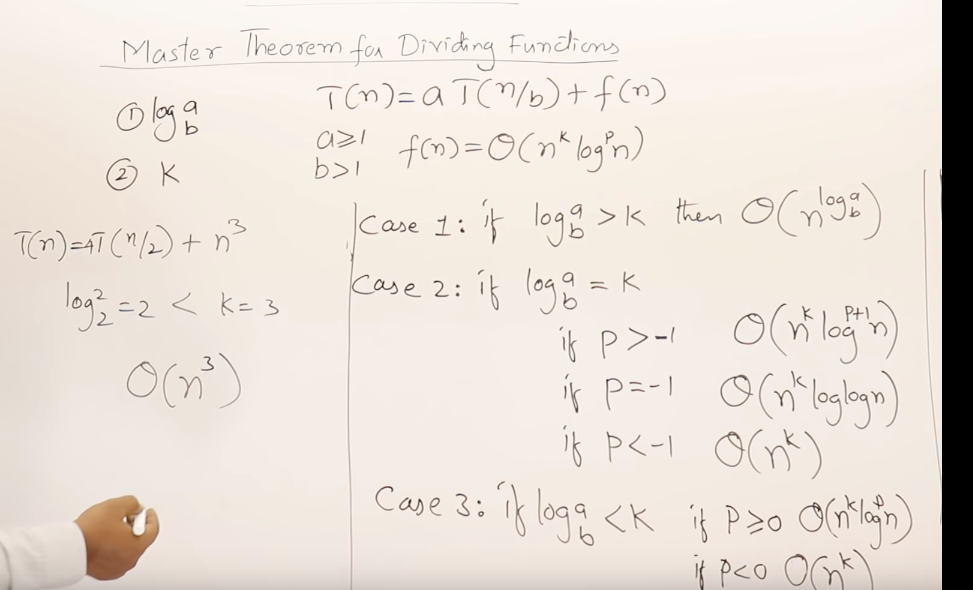 Master Theorem for Dividing Functions
① log_b^a
② K
T(n)=aT(n/b)+f(n)
a≥1
b>1
f(n)=O(n^k log^p n)
T(n)=4T(n/2)+n^3
log_2^2=2 < k=3
O(n^3)
Case 1: if log_b^a > K then O(n^{log_b^a})
Case 2: if log_b^a = K
if P>-1 O(n^k log^{P+1} n)
if P=-1 O(n^k loglogn)
if P<-1 O(n^k)
Case 3: if log_b^a < K if P≥0 O(n^k log^p n)
if P<0 O(n^k)